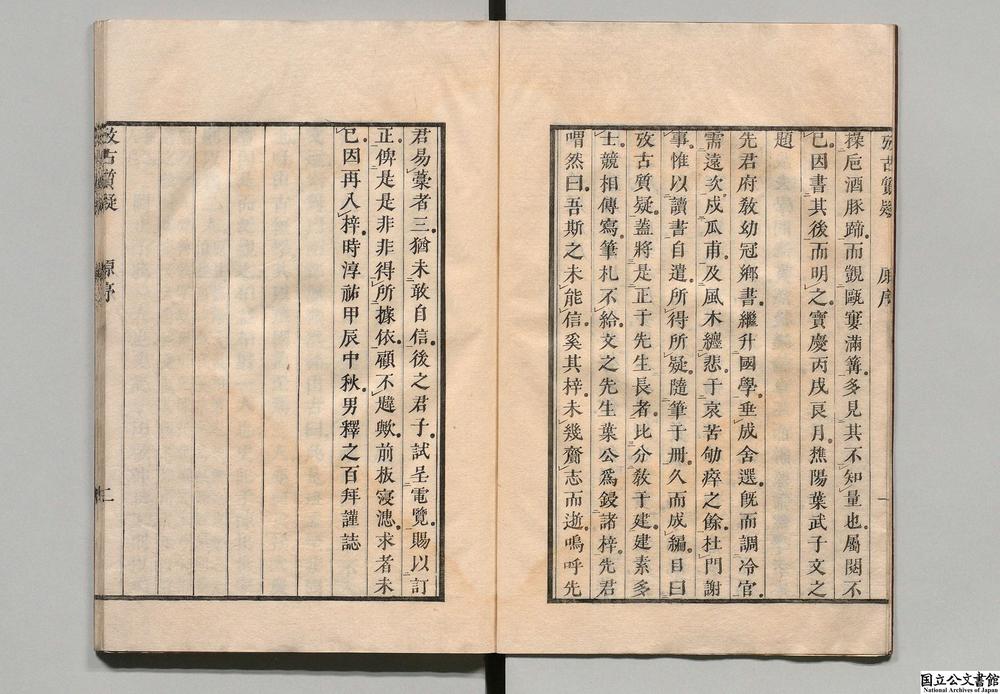 攷古質疑 原序
操卮酒豚蹄而覬甌窶滿篝多見其不知量也屬閱不
已因書其後而明之寶慶丙戌良月樵陽葉武子文之
題
先君府教幼冠鄉書繼升國學垂成舍選旣而調冷官
需遠次戍瓜甫及風木纏悲于哀苦劬瘁之餘杜門謝
事惟以讀書自遣所得所疑隨筆于冊久而成編目曰
攷古質疑蓋將是正于先生長者比分敎于建建素多
士競相傳寫筆札不給文之先生葉公爲鋟諸梓先君
喟然曰吾斯之未能信奚其梓未幾齎志而逝嗚呼先
君易藁者三猶未敢自信後之君子試呈電覽賜以訂
正俾是是非非得所據依顧不韙歟前板寖漶求者未
已因再入梓時淳祐甲辰中秋男釋之百拜謹誌
攷古質疑 原序 二
国立公文書館
National Archives of Japan